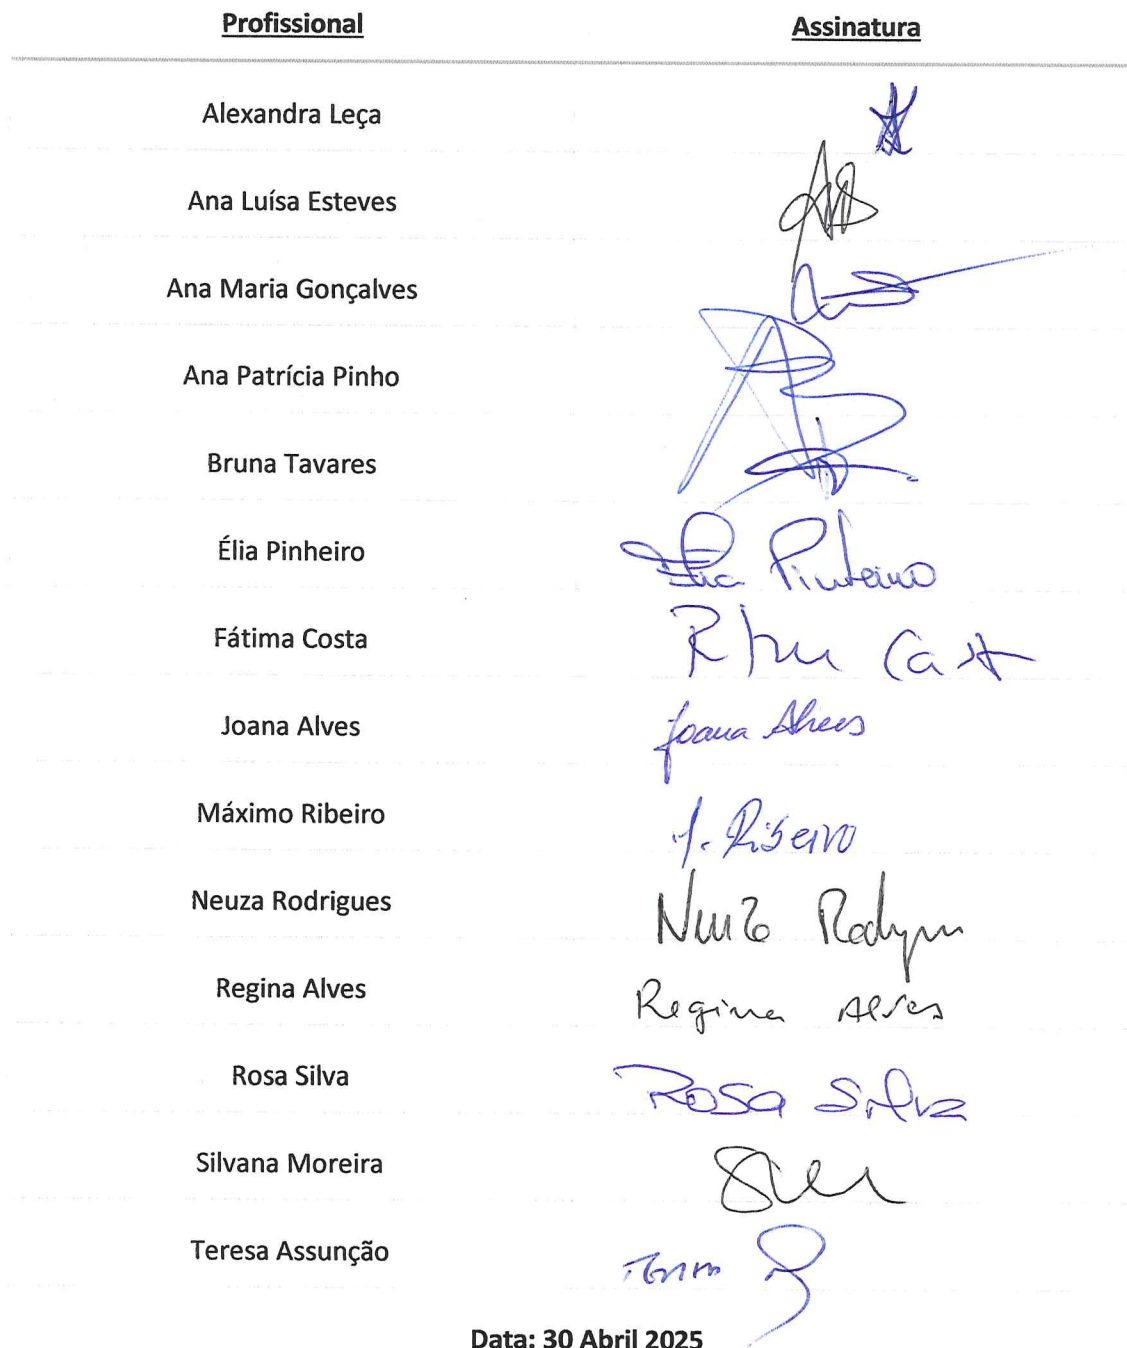 Profissional Assinatura
Alexandra Leça
Ana Luísa Esteves
Ana Maria Gonçalves
Ana Patrícia Pinho
Bruna Tavares
Élia Pinheiro Élia Pinheiro
Fátima Costa
Joana Alves Joana Alves
Máximo Ribeiro M. Ribeiro
Neuza Rodrigues Neuza
Regina Alves Regina Alves
Rosa Silva Rosa Silva
Silvana Moreira
Teresa Assunção
Data: 30 Abril 2025